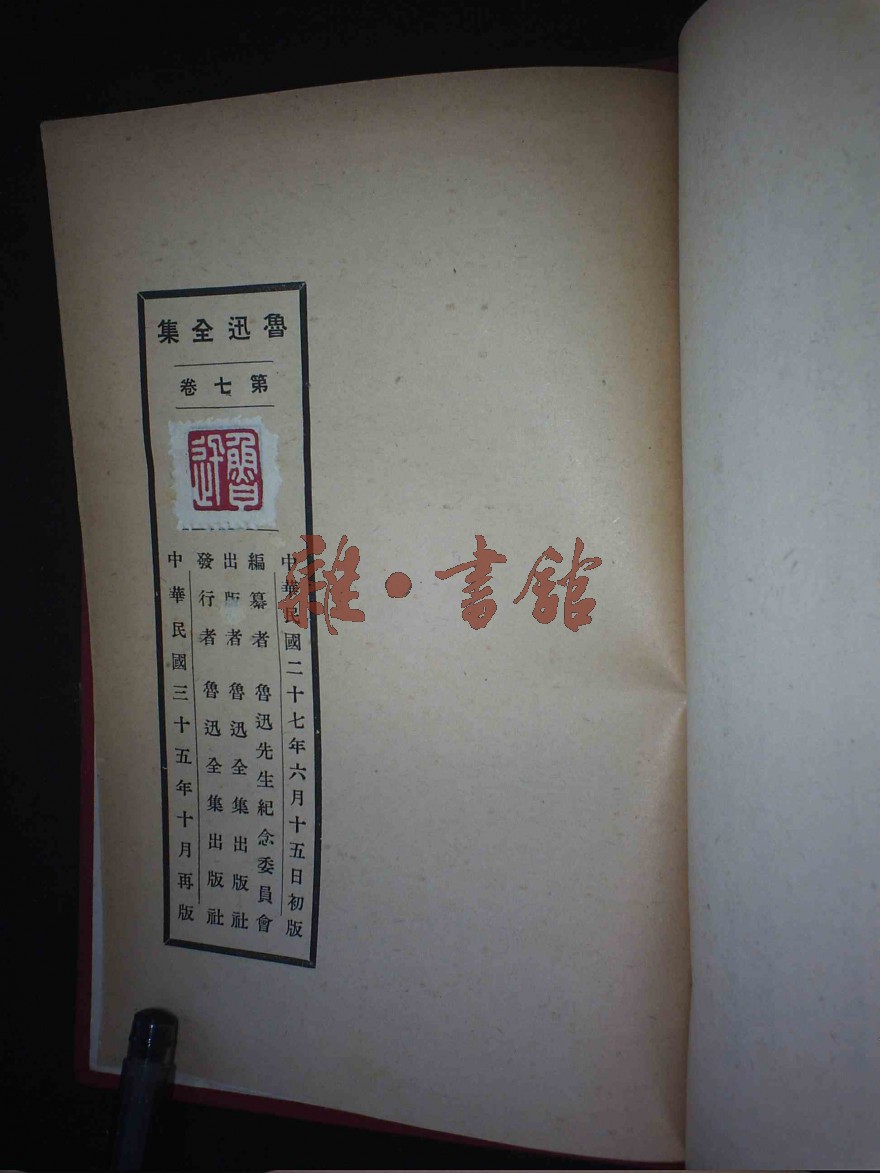 魯迅全集
第七卷
魯迅
中華民國二十七年六月十五日初版
編纂者 魯迅先生紀念委員會
出版者 魯迅全集出版社
發行者 魯迅全集出版社
中華民國三十五年十月再版
雜·書館